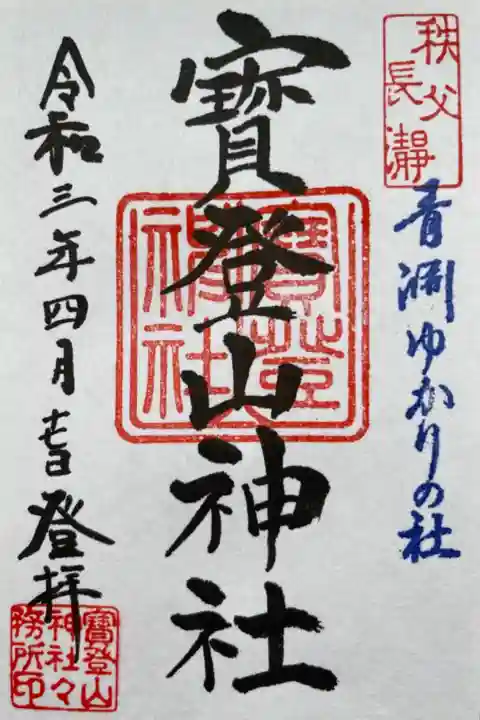 秩父
長瀞
青淵ゆかりの社
寳登山神社
寳登
山
神社
令和三年四月吉日登拝
寳登山
神社々
務所印